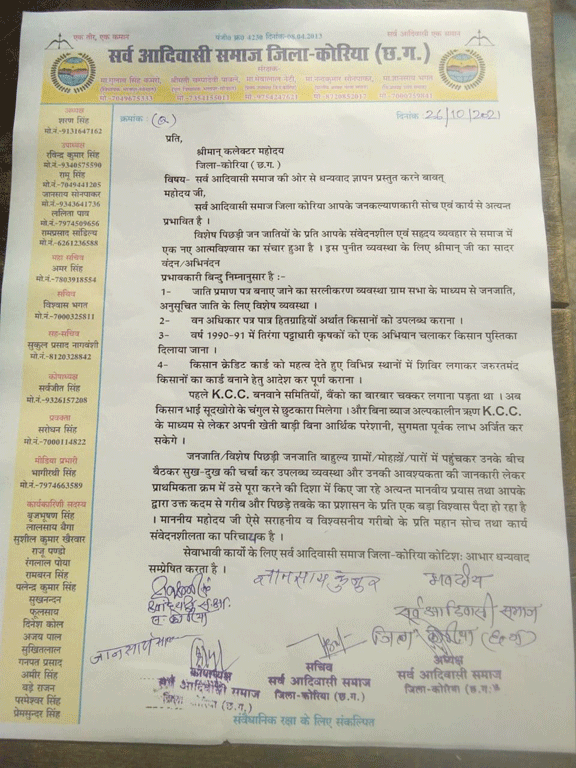 एक तीर, एक कमान
पंजी० क्र० 4238 दिनांक-08.04.2013
सर्व आदिवासी समाज
सर्व आदिवासी समाज जिला-कोरिया (छ.ग.)
संरक्षक
मो.-7049675533
मो.-7354155011
मो.-9754247621
मो.-9120932017
मो.-7000359841
क्रमांक:
दिनांक 26/10/2021
अध्यक्ष
शरण सिंह
मो.नं.-9131647162
उपाध्यक्ष
रविन्द्र कुमार सिंह
मो.नं.-9340575590
रामु सिंह
मो.नं.-7049441205
जानसाय सोनपाकर
मो.नं.-9343641736
ललिता पाव
मो.नं.-7974509656
रामप्रसाद सांडिल्य
मो.नं.-6261236588
महा सचिव
अमर सिंह
मो.नं.-7803918554
सचिव
विश्वास भगत
मो.नं.-7000325811
सह-सचिव
सुकुल प्रसाद नागबंशी
मो.नं.-8120328842
कोषाध्यक्ष
सर्वजीत सिंह
मो.नं.-9326157208
प्रवक्ता
सरोधन सिंह
मो.नं.-7000114822
मीडिया प्रभारी
भागीरथी सिंह
मो.नं.-7974663589
कार्यकारिणी सदस्य
बृजभूषण सिंह
लालसाय बैगा
सुशील कुमार खैरवार
राजू पण्डो
रंगलाल पोया
रामबरन सिंह
पलेन्द्र कुमार सिंह
सुखनन्दन
फूलसाय
दिनेश कोल
अजय पाल
सुखितलाल
गनपत प्रसाद
अमीर सिंह
बड़े राजन
परमेश्वर सिंह
प्रेमसुन्दर सिंह
प्रति,
श्रीमान् कलेक्टर महोदय
जिला-कोरिया (छ.ग.)
विषय- सर्व आदिवासी समाज की ओर से धन्यवाद ज्ञापन प्रस्तुत करने बावत्
महोदय जी,
सर्व आदिवासी समाज जिला कोरिया आपके जनकल्याणकारी सोच एवं कार्य से अत्यन्त
प्रभावित है ।
विशेष पिछड़ी जन जातियों के प्रति आपके संवेदनशील एवं सहृदय व्यवहार से समाज में
एक नए आत्मविश्वास का संचार हुआ है । इस पुनीत व्यवस्था के लिए श्रीमान् जी का सादर
वंदन/अभिनंदन
प्रभावकारी बिन्दु निम्नानुसार है :-
1- जाति प्रमाण पत्र बनाए जाने का सरलीकरण व्यवस्था ग्राम सभा के माध्यम से जनजाति,
अनुसूचित जाति के लिए विशेष व्यवस्था ।
2- वन अधिकार पत्र पात्र हितग्राहियों अर्थात किसानों को उपलब्ध कराना ।
3- वर्ष 1990-91 में तिरंगा पट्टाधारी कृषकों को एक अभियान चलाकर किसान पुस्तिका
दिलाया जाना ।
4- किसान क्रेडिट कार्ड को महत्व देते हुए विभिन्न स्थानों में शिविर लगाकर जरूरतमंद
किसानों का कार्ड बनाने हेतु आदेश कर पूर्ण कराना ।
पहले K.C.C. बनवाने समितियों, बैंको का बारबार चक्कर लगाना पड़ता था । अब
किसान भाई सूदखोरो के चंगुल से छुटकारा मिलेगा ।और बिना ब्याज अल्पकालीन ऋण K.C.C.
के माध्यम से लेकर अपनी खेती बाड़ी बिना आर्थिक परेशानी, सुगमता पूर्वक लाभ अर्जित कर
सकेगे ।
जनजाति/विशेष पिछड़ी जनजाति बाहुल्य ग्रामों/मोहल्लों/पारों में पहुंचकर उनके बीच
बैठकर सुख-दुख की चर्चा कर उपलब्ध व्यवस्था और उनकी आवश्यकता की जानकारी लेकर
प्राथमिकता क्रम में उसे पूरा करने की दिशा में किए जा रहे अत्यन्त मानवीय प्रयास तथा आपके
द्वारा उक्त कदम से गरीब और पिछड़े तबके का प्रशासन के प्रति एक बड़ा विश्वास पैदा हो रहा है
। माननीय महोदय जी ऐसे सराहनीय व विश्वसनीय गरीबो के प्रति महान सोच तथा कार्य
संवेदनशीलता का परिचायक है ।
सेवाभावी कार्यों के लिए सर्व आदिवासी समाज जिला-कोरिया कोटिशः आभार धन्यवाद
सम्प्रेषित करता है ।
जानसाय कुजुर
भवदीय
सर्व आदिवासी समाज
जिला कोरिया (छ.ग.)
जानसाय
कोषाध्यक्ष
सर्व आदिवासी समाज
जिला-कोरिया (छ.ग.)
सचिव
सर्व आदिवासी समाज
जिला-कोरिया (छ.ग.)
अध्यक्ष
सर्व आदिवासी समाज
जिला-कोरिया (छ.ग.)
संवैधानिक रक्षा के लिए संकल्पित